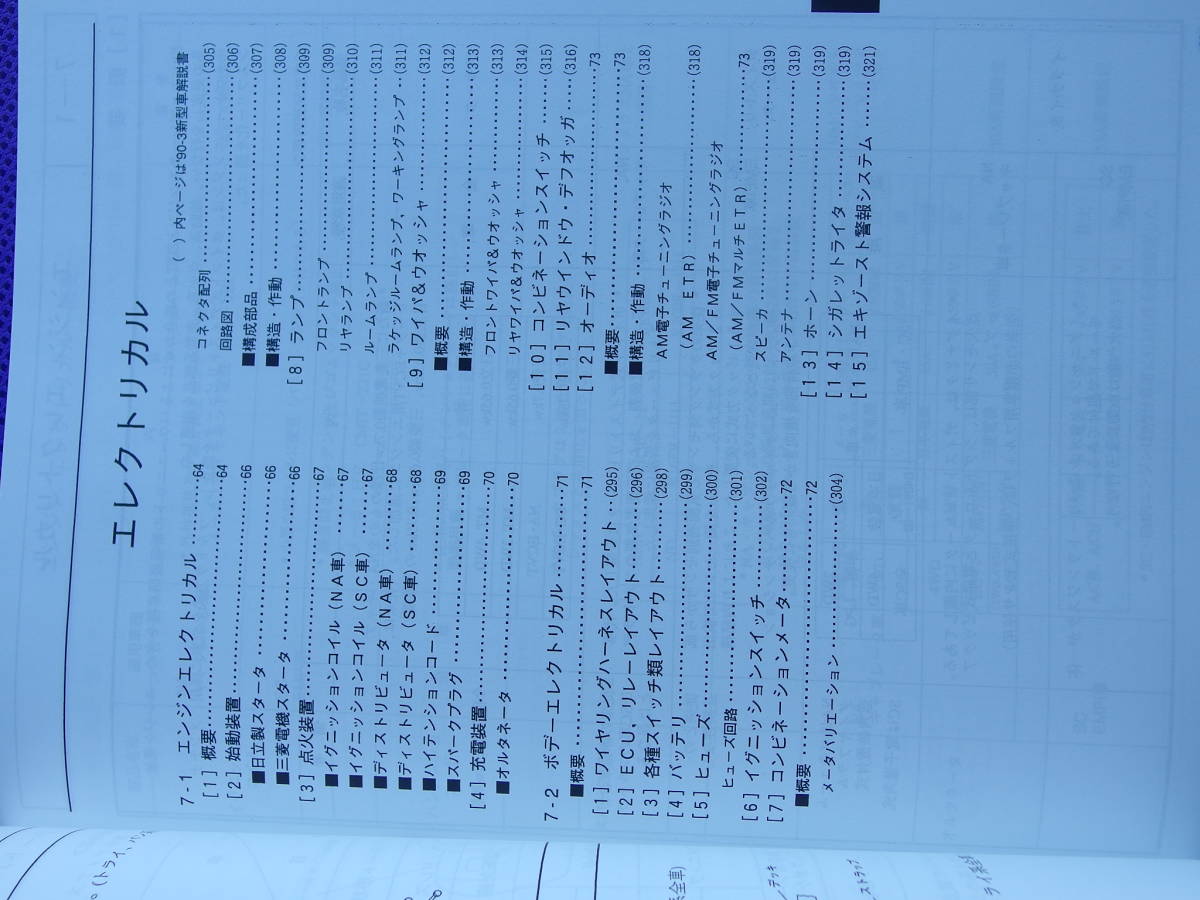 エレクトリカル
( )内ページは'90-3新型車解説書
7-1 エンジンエレクトリカル………64
[1] 概要………64
[2] 始動装置………66
■日立製スタータ………66
■三菱電機スタータ………66
[3] 点火装置………67
■イグニッションコイル(NA車)………67
■イグニッションコイル(SC車)………67
■ディストリビュータ(NA車)………68
■ディストリビュータ(SC車)………68
■ハイテンションコード………69
■スパークプラグ………69
[4] 充電装置………70
■オルタネータ………70
7-2 ボデーエレクトリカル………71
■概要………71
[1] ワイヤリングハーネスレイアウト…(295)
[2] ECU、リレーレイアウト………(296)
[3] 各種スイッチ類レイアウト………(298)
[4] バッテリ………(299)
[5] ヒューズ………(300)
ヒューズ回路………(301)
[6] イグニッションスイッチ………(302)
[7] コンビネーションメータ………72
■概要………72
メータバリエーション………(304)
コネクタ配列………(305)
回路図………(306)
■構成部品………(307)
■構造・作動………(308)
[8] ランプ………(309)
フロントランプ………(309)
リヤランプ………(310)
ルームランプ………(311)
ラゲッジルームランプ、ワーキングランプ…(311)
[9] ワイパ&ウオッシャ………(312)
■概要………(312)
■構造・作動………(313)
フロントワイパ&ウオッシャ………(313)
リヤワイパ&ウオッシャ………(314)
[10] コンビネーションスイッチ………(315)
[11] リヤウインドウ・デフォッガ………(316)
[12] オーディオ………73
■概要………73
■構造・作動………(318)
AM電子チューニングラジオ
(AM ETR)………(318)
AM/FM電子チューニングラジオ
(AM/FMマルチETR)………73
スピーカ………(319)
アンテナ………(319)
[13] ホーン………(319)
[14] シガレットライタ………(319)
[15] エキゾースト警報システム………(321)
(トライ、バン
全車)
デッキ
ストラップ
ライ系